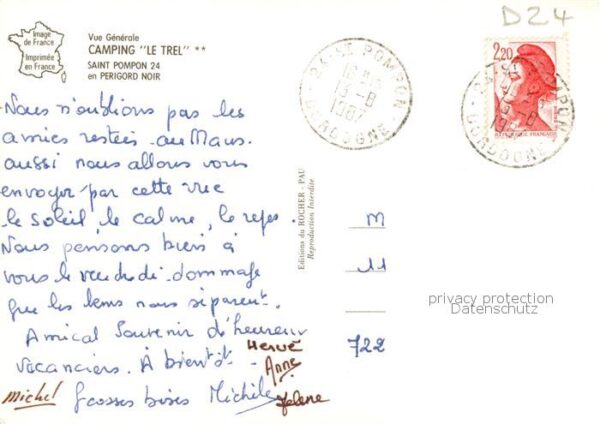 Image
de France
Imprimée
en France
Vue Générale
CAMPING "LE TREL" **
SAINT POMPON 24
en PERIGORD NOIR
D24
24-ST POMPON
13-8
1987
DORDOGNE
2,20
REPUBLIQUE FRANÇAISE
Nous n'oublions pas les
amies restées au Mans.
aussi nous allons vous
envoyer par cette vue
le soleil, le calme, le repos.
Nous pensons bien à
vous le vendredi. dommage
que les kms nous séparent.
Amical Souvenir d'heureux
vacanciers. À bientôt.
Hervé
Anne
Michel Grosses bises Michèle
Editions du ROCHER - PAU
Reproduction Interdite
M
11
722
privacy protection
Datenschutz